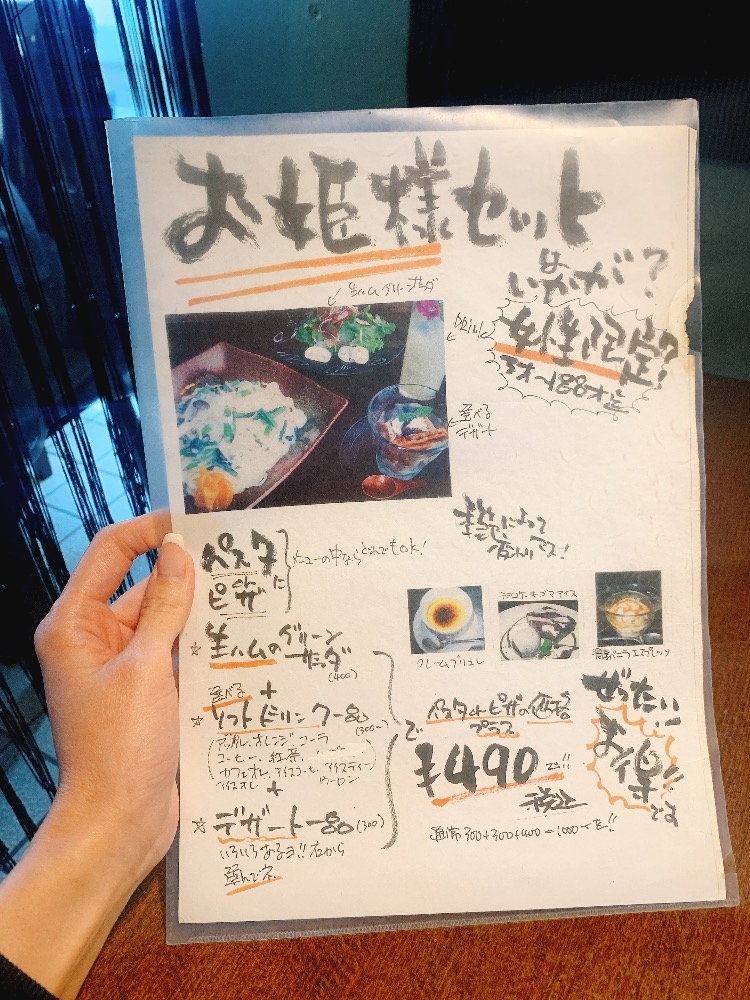 お姫様セット
いかが?
女性限定?
3才〜188才迄
生ハムグリーンサラダ
Drink
選べる
デザート
パスタ
or
ピザ
メニューの中ならどれでもOK!
季節によって
変わりマス!
☆ 生ハムのグリーン
サラダ
(400)
+
選べる
☆ ソフトドリンク一品
(300〜)
アップル、オレンジ、コーラ
コーヒー、紅茶、
カフェオレ、アイスコーヒー、アイスティー
アイスオレ ウーロン
+
☆ デザート一品 (300)
いろいろあるヨ!! 右から
選んでネ
クレームブリュレ
黒ゴマアイス
バニラエスプレッソ
で
パスタorピザの価格
プラス
¥490です!!
税込
通常300+300+400=1000イエ!!
ぜったい
お得!!
です